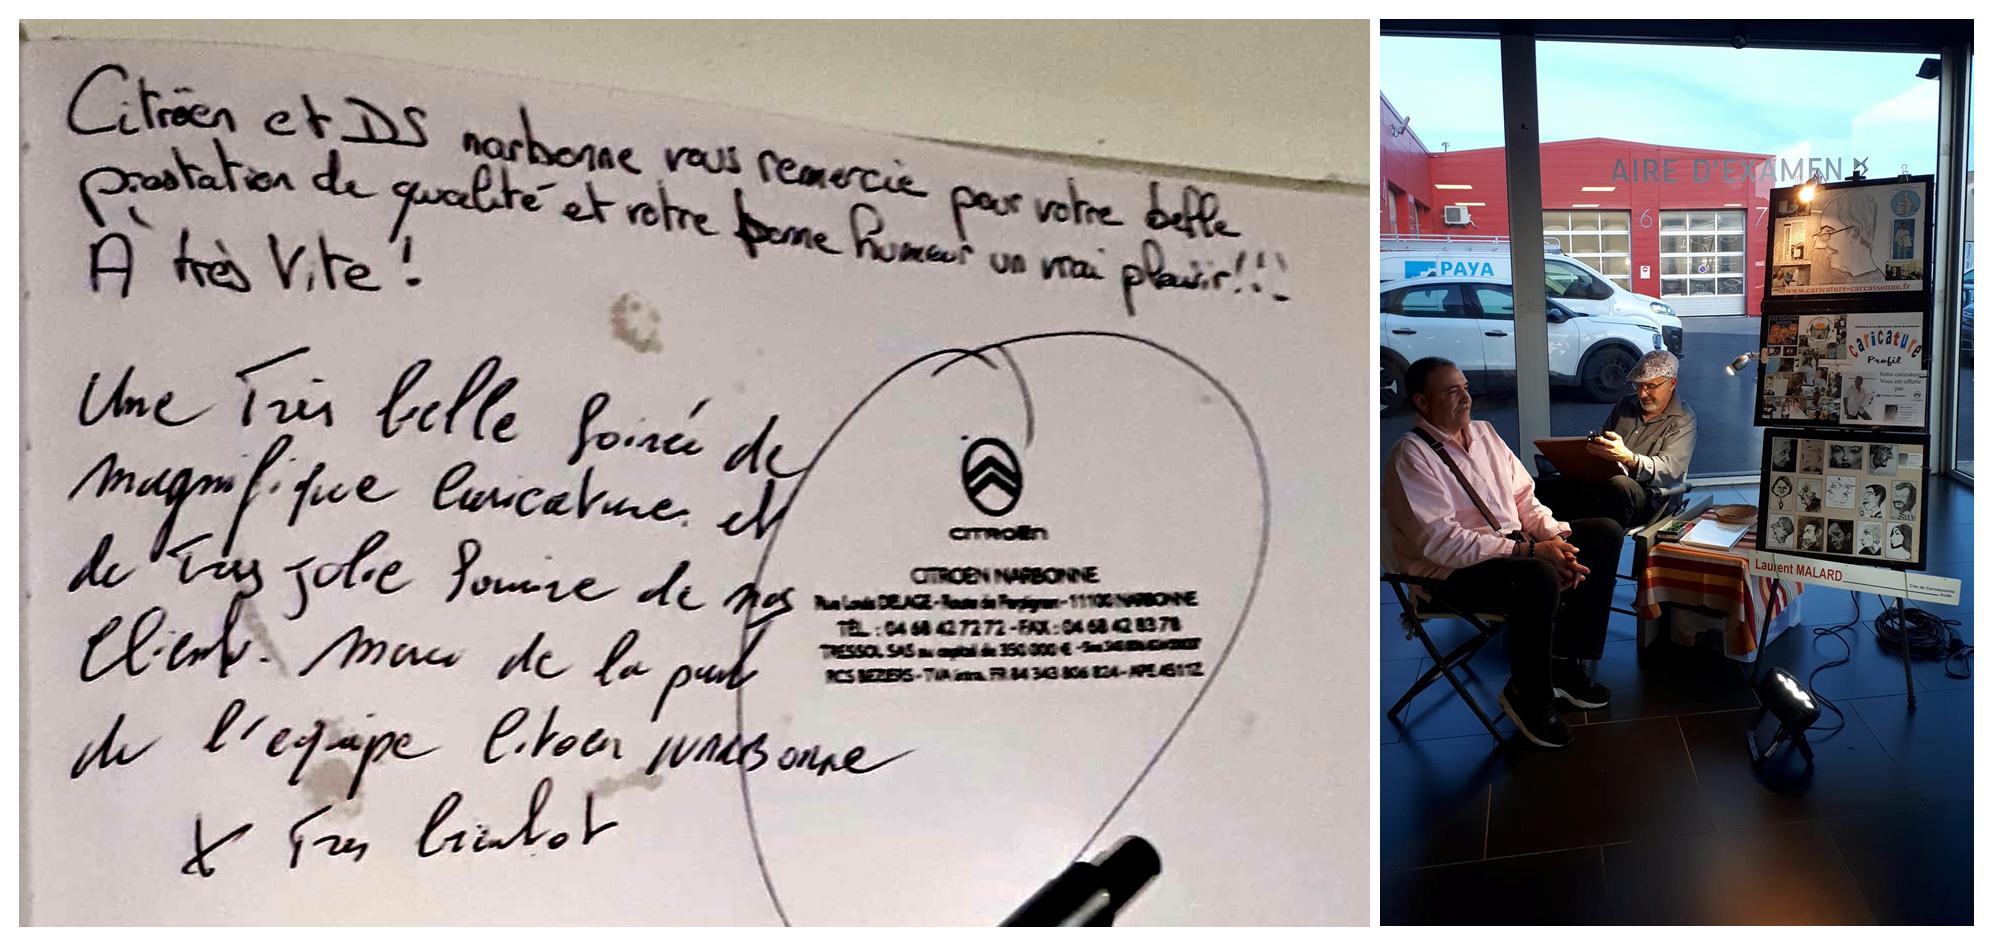 Citroën et DS narbonne vous remercie pour votre belle
prestation de qualité et votre bonne humeur un vrai plaisir!!!
À très Vite !
Une Très belle Soirée de
magnifique Caricature. et
de Tres jolie Sourire de nos
Clients. Merci de la part
de l'equipe Citroen NARBONNE
Tres bientot
CITROËN
CITROËN NARBONNE
Rue Louis DELAGE - Route de Perpignan - 11100 NARBONNE
TÉL. : 04 68 42 72 72 - FAX : 04 68 42 83 78
TRESSOL SAS au capital de 350 000 €
RCS BEZIERS - TVA intra. FR 84 343 806 824 - APE 4511Z
AIRE D'EXAMEN
6 7
PAYA
www.caricature-carcassonne.fr
caricature
Profil
Votre caricature
Vous est offerte
par
Laurent MALARD
Cité de Carcassonne
Aude